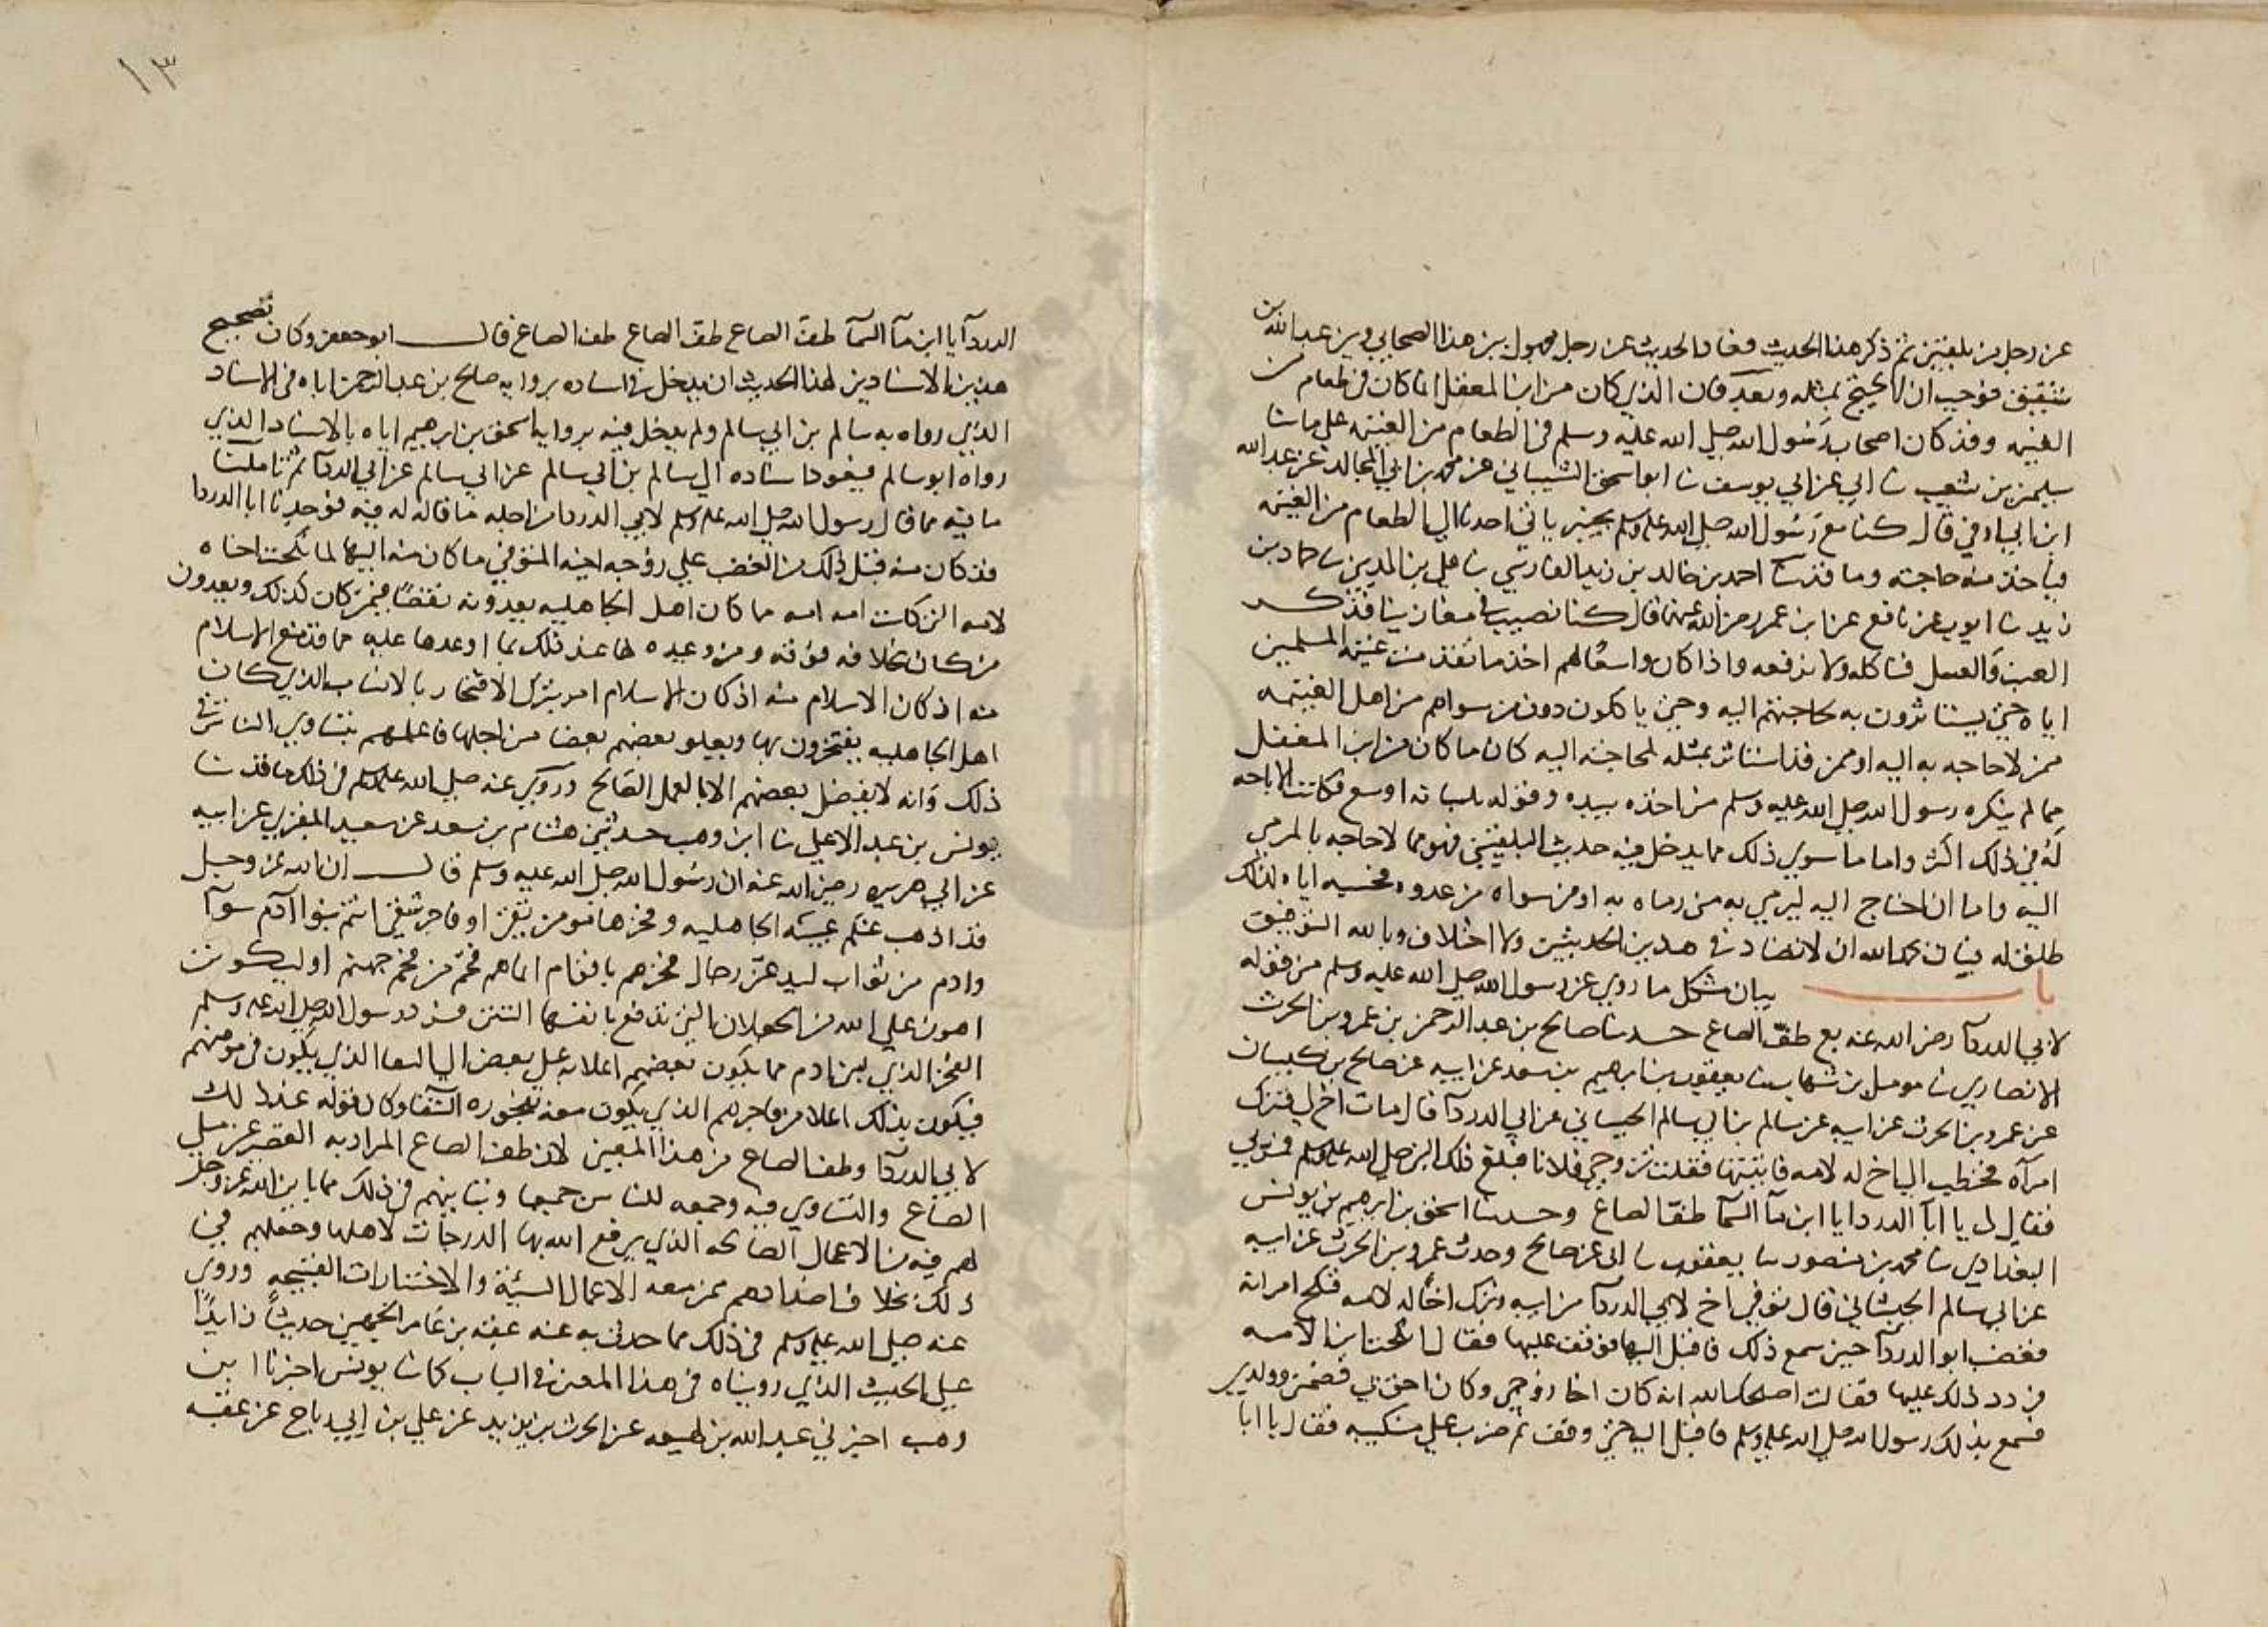 عن رجل من بلقين ثم ذكر هذا الحديث فعاد الحديث عن رجل مجهول بين هذا الصحابي وبين عبد الله بن
شقيق فوجب ان لا يحتج بمثله وبعد فان الذي كان من ابن المغفل انما كان في طعام من
الغنيمه وقد كان اصحاب رسول الله صلى الله عليه وسلم في الطعام من الغنيمه على ما ثنا
سليمن بن شعيب ثنا ابي عن ابي يوسف ثنا ابو اسحق الشيباني عن محمد بن ابي المجالد عن عبد الله
ابن ابي اوفى قال كنا مع رسول الله صلى الله عليه وسلم بخيبر ياتي احدنا الى الطعام من الغنيمه
فياخذ منه حاجته وما قد ثنا احمد بن خالد بن يزيد الفارسي ثنا علي بن المديني ثنا حماد بن
زيد ثنا ايوب عن نافع عن ابن عمر رضي الله عنهما قال كنا نصيب في مغازينا فذكر
العنب والعسل فناكله ولا نرفعه واذا كان واسعا لهم اخذ ما نفذ من غنيمة المسلمين
اياه حتى يستاثرون به لحاجتهم اليه وحتى ياكلون دون من سواهم من اهل الغنيمه
ممن لا حاجه به اليه او ممن قد استاثر بمثله لحاجته اليه كان ما كان من ابن المغفل
مما لم ينكره رسول الله صلى الله عليه وسلم من اخذه بيده وقوله بلسانه اوسع فكانت الاباحه
له في ذلك اكثر واما ما سوى ذلك مما يدخل فيه حديث البلقيني فهو مما لا حاجه بالمرمي
اليه واما ان احتاج اليه ليرمي به من رماه به او من سواه من عدوه فحبسه اياه لذلك
طلق له فبان بحمد الله ان لا تضاد في هذين الحديثين ولا اختلاف وبالله التوفيق
باب بيان مشكل ما روي عن رسول الله صلى الله عليه وسلم من قوله
لابي الدرداء رضي الله عنه مع طف الصاع حدثنا صالح بن عبد الرحمن بن عمرو بن الحرث
الانصاري ثنا مومل بن شهاب ثنا يعقوب بن ابرهيم بن سعد عن ابيه عن صالح بن كيسان
عن عمرو بن الحرث عن ابيه عن سالم بن ابي سالم الجيشاني عن ابي الدرداء قال مات اخ لي فترك
امرآه فخطب الي اخ له لامه فابيتها فقلت تزوجي فلانا فبلغ ذلك النبي صلى الله عليه وسلم فمر بي
فقال لي يا ابا الدرداء يا ابن مآ السمآ طف الصاع وحدثنا اسحق بن ابرهيم بن يونس
البغدادي ثنا محمد بن منصور ثنا يعقوب ثنا ابي عن صالح وحدث عمرو بن الحرث عن ابيه
عن ابي سالم الجيشاني قال توفي اخ لابي الدردآ من ابيه وترك اخا له لامه فنكح امراته
فغضب ابو الدردآ حين سمع ذلك فاقبل اليها فوقف عليها فقال انكحت ابن الامه
فردد ذلك عليها فقالت اصلحك الله انه كان اخا زوجي وكان احق بي فضمني وولدي
فسمع بذلك رسول الله صلى الله عليه وسلم فاقبل اليه حتى وقف ثم ضرب على منكبيه فقال يا ابا
١٣
الدردآ يا ابن مآ السمآ طف الصاع طف الصاع طف الصاع قال ابو جعفر وكان تصحيح
هذين الاسنادين لهذا الحديث ان يدخل في اسناده برواية صالح بن عبد الرحمن اياه في الاسناد
الذي رواه به سالم بن ابي سالم ولم يدخل فيه برواية اسحق بن ابرهيم اياه بالاسناد الذي
رواه ابو سالم فيعود اسناده الى سالم بن ابي سالم عن ابي سالم عن ابي الدردآ ثم تاملنا
ما فيه مما قال رسول الله صلى الله عليه وسلم لابي الدرداء من اجله ما قاله له فيه فوجدنا ابا الدرداء
قد كان منه قبل ذلك من الغضب على زوجة اخيه المتوفى ما كان منه اليها لما نكحت اخاه
لامه التي كانت امه امه ما كان اهل الجاهليه يعدونه نقصا فيمن كان كذلك ويعدون
من كان بخلافه فوقه ومن وعيده لها عند ذلك بما اوعدها عليه مما قد منع الاسلام
منه اذ كان الاسلام منه اذ كان الاسلام امر بترك الافتخار بالانساب الذي كان
اهل الجاهليه يفتخرون بها ويعلو بعضهم بعضا من اجلها فاعلمهم بتساوي الناس في
ذلك وانه لا يفضل بعضهم الا بالعمل الصالح وروي عنه صلى الله عليه وسلم في ذلك ما قد ثنا
يونس بن عبد الاعلى ثنا ابن وهب حدثني هشام بن سعد عن سعيد المقبري عن ابيه
عن ابي هريره رضي الله عنه ان رسول الله صلى الله عليه وسلم قال ان الله عز وجل
قد اذهب عنكم عبية الجاهليه وفخرها مومن تقي او فاجر شقي انتم بنوا آدم سوآ
وادم من تراب ليدعن رجال فخرهم باقوام انما هم فحم من فحم جهنم او ليكونن
اهون على الله من الجعلان التي تدفع بانفسها النتن فرد رسول الله صلى الله عليه وسلم
الفخر الذي لبني ادم مما يكون بعضهم اعلا به على بعض الى المعنا الذي يكون في مومنهم
فيكون بذلك اعلا من فاجرهم الذي يكون معه بفجوره الشقا وكان قوله عند ذلك
لابي الدردآ وطف الصاع من هذا المعنى لان طف الصاع المراد به القصر عن ملي
الصاع والتساوي فيه وجمعه للناس جميعا وتباينهم في ذلك مما باين الله عز وجل
لهم فيه من الاعمال الصالحه الذي يرفع الله بها الدرجات لاهلها وجعلهم في
ذلك بخلاف اضدادهم ممن معه الاعمال السيئة والاختيارات القبيحه وروي
عنه صلى الله عليه وسلم في ذلك مما حدث به عنه عقبه بن عامر الجهني حديثا زايدا
على الحديث الذي رويناه في هذا المعنى في الباب كما ثنا يونس اخبرنا ابن
وهب اخبرني عبد الله بن لهيعه عن الحرث بن يزيد عن علي بن رباح عن عقبه